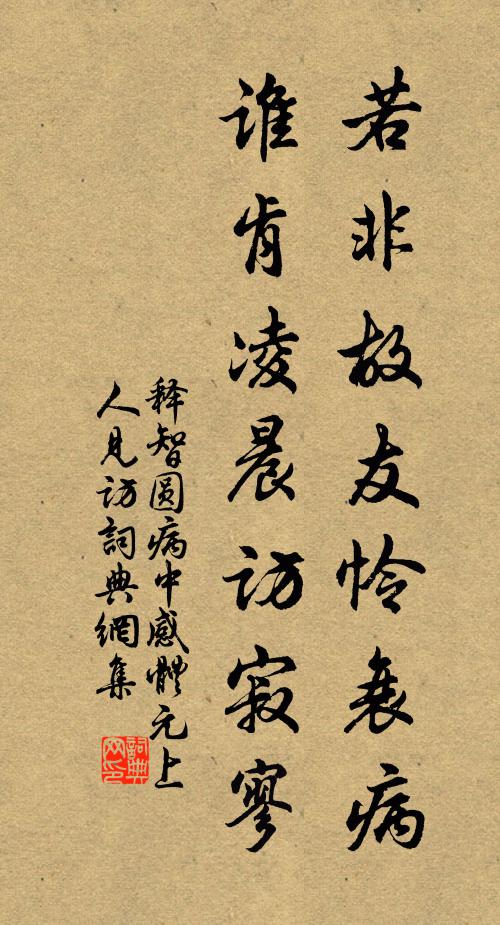 若非故友怜衰病
谁肯凌晨访寂寥
释智圆病中感體元上
人見访詞典網集
詞典网印